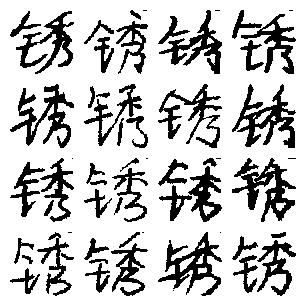 锈锈锈锈
锈锈锈锈
锈锈锈锈
锈锈锈锈